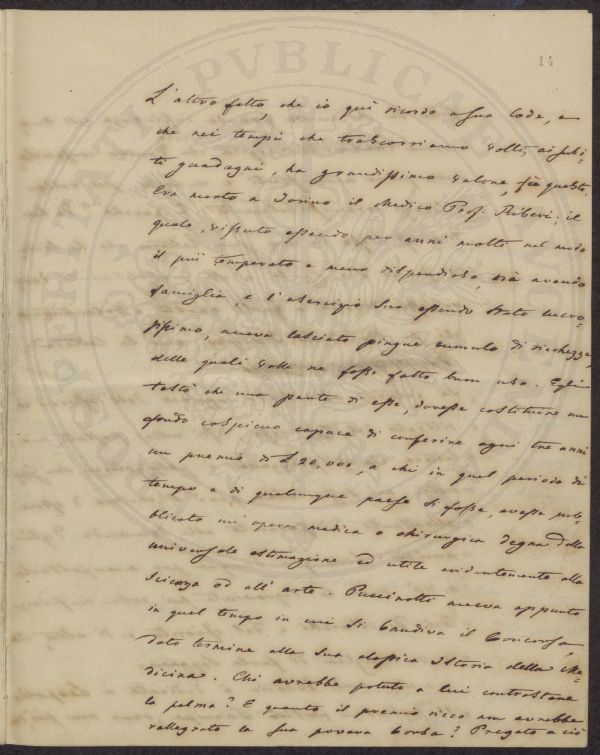 14
L'altro fatto, che io quì ricordo a sua lode, e
che nei tempi che trascorriamo volti ai subi-
ti guadagni, ha grandissimo valore, fu questo.
Era morto a Torino il Medico Prof. Riberi; il
quale, vissuto essendo per anni molti nel modo
il più temperato e meno dispendioso, nè avendo
famiglia, e l'esercizio suo essendo stato lucro-
sissimo, aveva lasciato pingue cumulo di ricchezze,
delle quali volle ne fosse fatto buon uso. Egli
testò che una parte di esse, dovesse costituire un
fondo cospicuo capace di conferire ogni tre anni
un premio di £ 20,000, a chi in quel periodo di
tempo e di qualunque paese si fosse, avesse pub-
blicato un'opera medica o chirurgica degna della
universale estimazione ed utile evidentemente alla
Scienza od all'arte. Puccinotti aveva appunto
in quel tempo in cui si bandiva il Concorso,
dato termine alla sua classica Istoria della Me-
dicina. Chi avrebbe potuto a lui contrastare
la palma? E quanto il premio ricco non avrebbe
rallegrato la sua povera borsa? Pregato a ciò